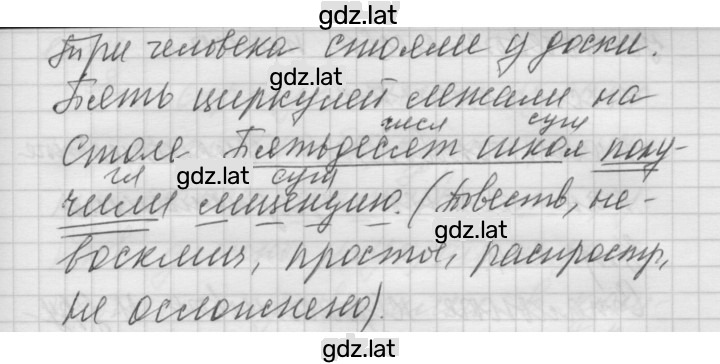 gdz.lat
Три человека стояли у доски.
gdz.lat
Пять циркулей лежали на
числ сущ
столе. Пятьдесят школ полу-
gdz.lat
гл сущ
чили лицензию. (Повеств, не-
gdz.lat
восклиц, простое, распростр,
не осложнено).
gdz.lat